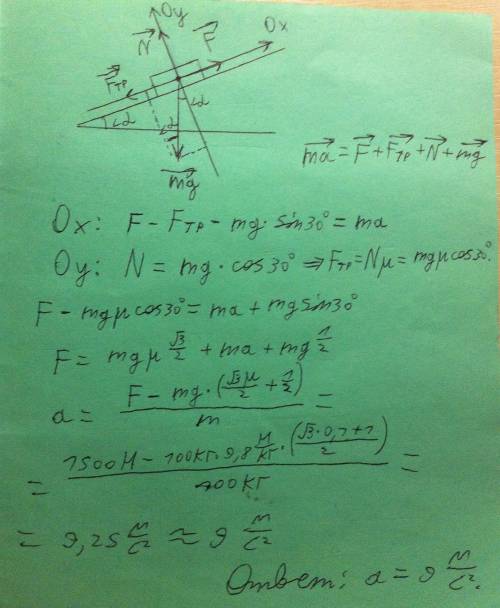 Oy
Ox
N F
Fтр
∠α ∠α ∠α
mg
ma = F + Fтр + N + mg
Ox: F − Fтр − mg · sin30° = ma
Oy: N = mg · cos30° ⇒ Fтр = Nμ = mgμcos30°.
F − mgμcos30° = ma + mgsin30°
F = mgμ √3/2 + ma + mg 1/2
a = (F − mg · (√3μ/2 + 1/2))/m =
= (1500Н − 100кг · 9,8 м/кг · ((√3 · 0,1 + 1)/2))/100кг =
= 9,25 м/с² ≈ 9 м/с²
Ответ: a = 9 м/с².